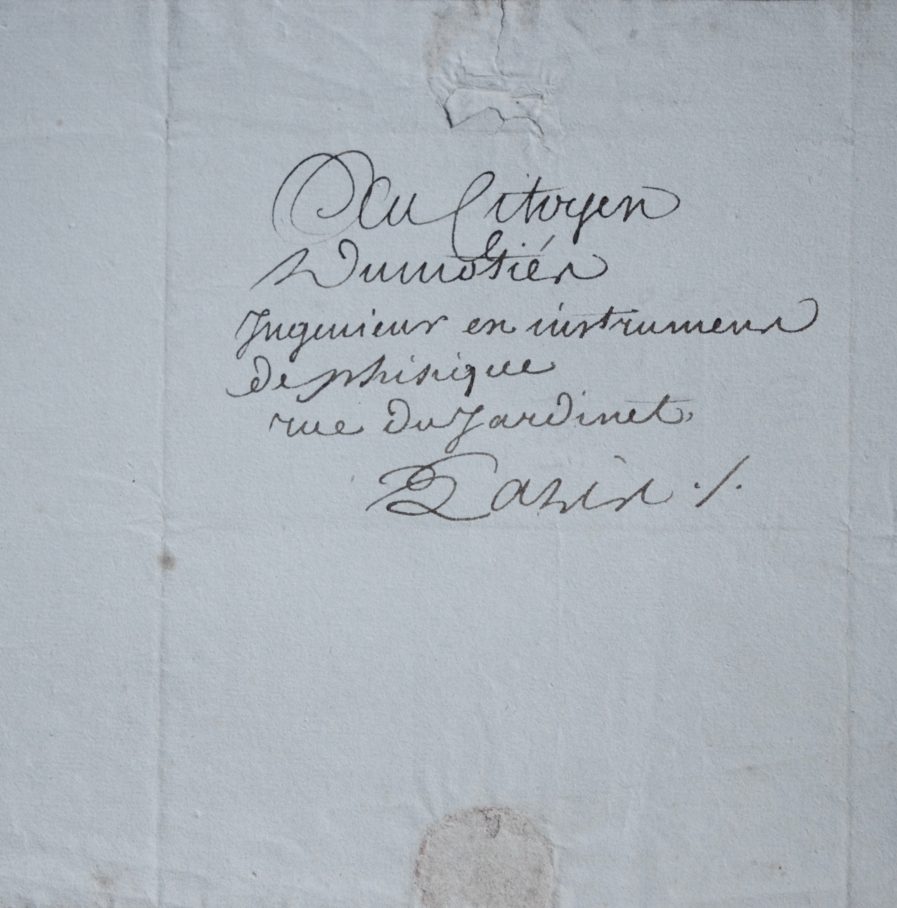 Au Citoyen
Dumotiér
Ingenieur en instrumens
de phisique
rue du Jardinet,
Paris ./.